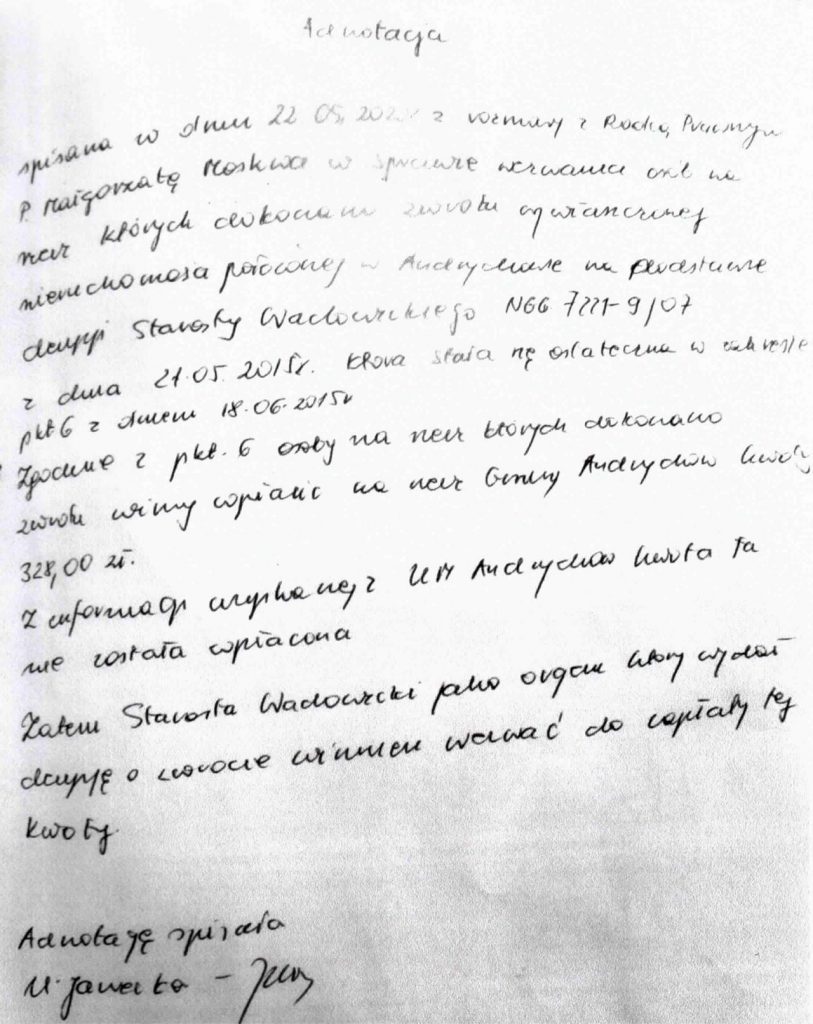 Adnotacja
spisana w dniu 22 05, 202 z rozmowy z Radcą Prawnym
P. Małgorzatę Moskwa w sprawie wezwania osób na
rzecz których dokonano zwrotu wywłaszczonej
nieruchomości położonej w Andrychowie na podstawie
decyzji Starosty Wadowickiego NGG 7221-9/07
z dnia 21.05.2015r. która stała się ostateczna w zakresie
pkt 6 z dniem 18.06.2015r
Zgodnie z pkt. 6 osoby na rzecz których dokonano
zwrotu winny wpłacić na rzecz Gminy Andrychów kwotę
328,00 zł.
Z informacji uzyskanej z UM Andrychów kwota ta
nie została wpłacona
Zatem Starosta Wadowicki jako organ który wydał
decyzję o zwrocie winien wezwać do wpłaty tej
kwoty.
Adnotację spisała
M. Jawecka –